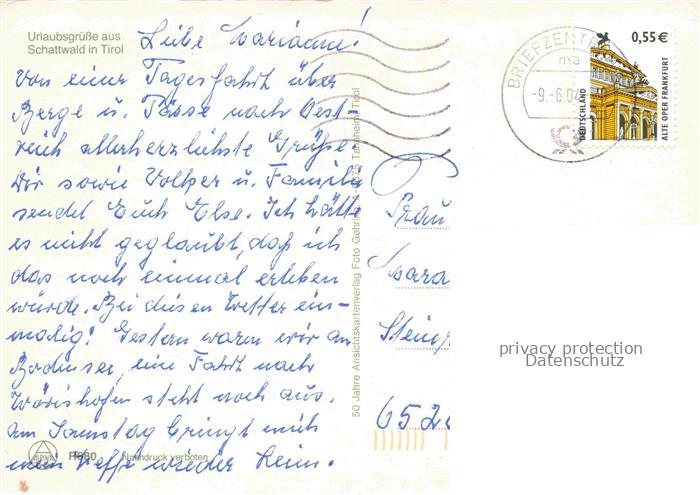 Urlaubsgrüße aus
Schattwald in Tirol
Liebe Marianne!
Von einer Tagesfahrt über
Berge u. Pässe nach Oest-
reich allerherzlichste Grüße
Dir sowie Volker u. Familie
sendet Euch Else. Ich hätte
es nicht geglaubt, daß ich
das noch einmal erleben
würde. Bei diesen Wetter ein-
malig! Gestern waren wir am
Bodensee, eine Fahrt nach
Wörishofen steht noch aus.
am Samstag bringt mich
mein Neffe wieder heim.
R680 Nachdruck verboten
50 Jahre Ansichtskartenverlag Foto Gehring Tannheim/Tirol
BRIEFZENTR
ma
-9.-6.04
0,55 €
DEUTSCHLAND
ALTE OPER FRANKFURT
Frau
Mara
Stein
6526
privacy protection
Datenschutz